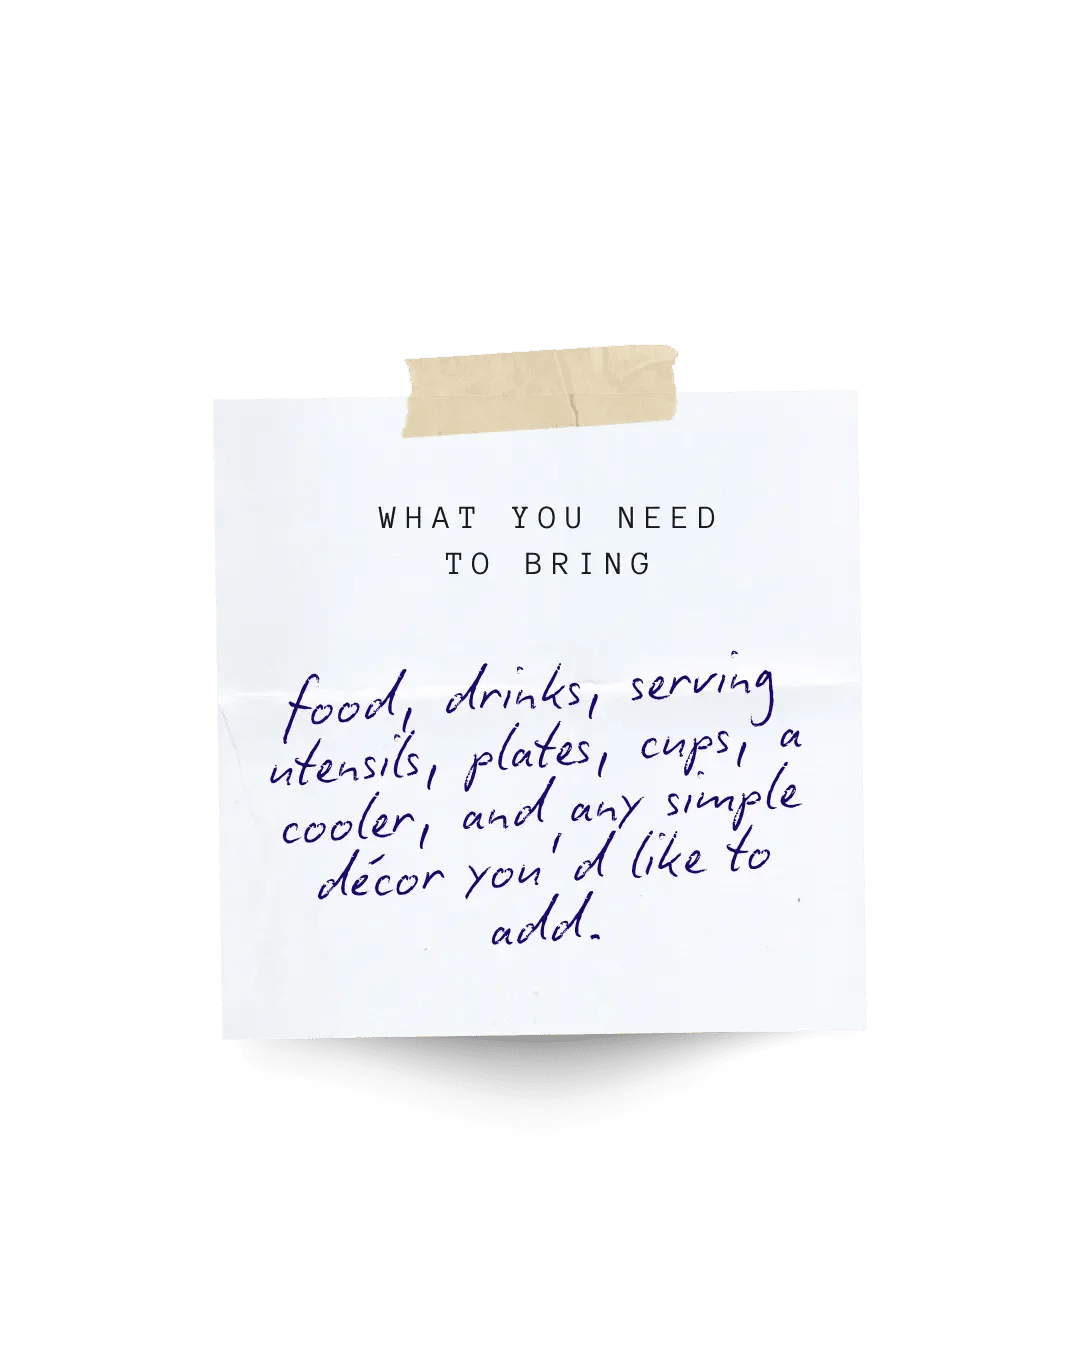 WHAT YOU NEED
TO BRING
food, drinks, serving
utensils, plates, cups, a
cooler, and any simple
décor you'd like to
add.